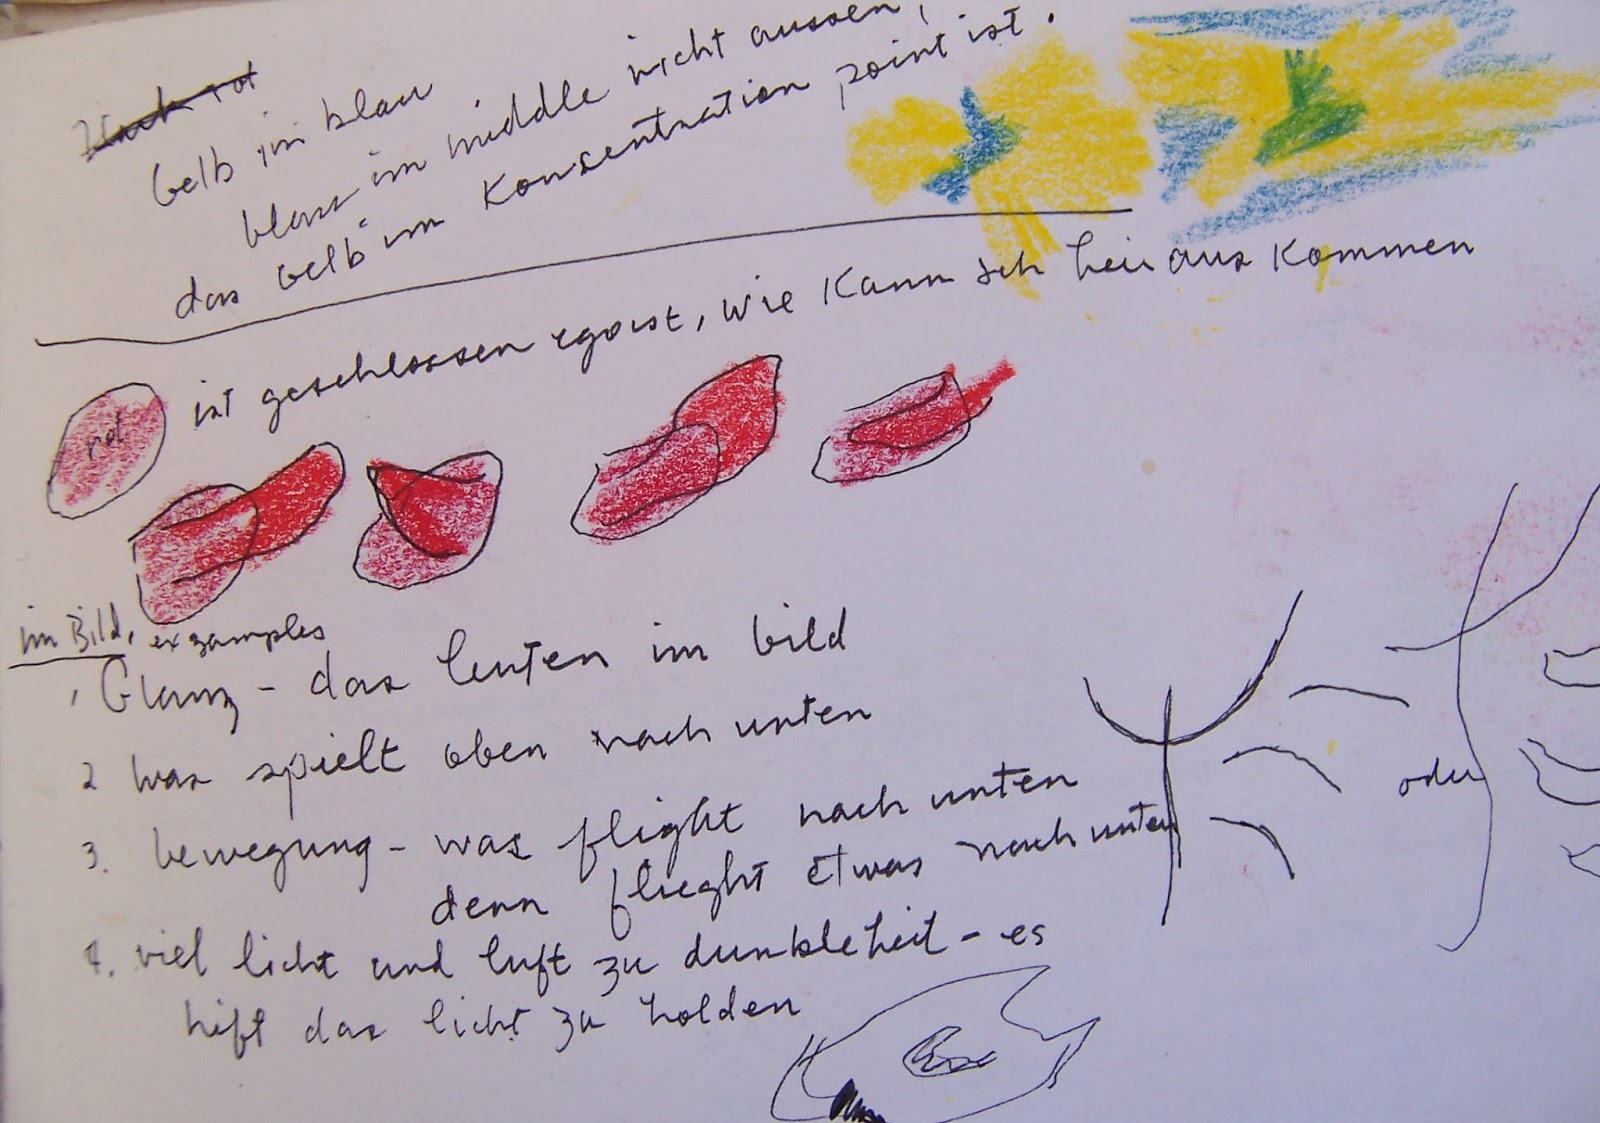 Nach rot
Gelb im blau
blau im middle nicht aussen,
das Gelb im Konsentration point ist.
rot ist geschlossen egoist, wie kann ich heir aus kommen
im Bild, exzamples
1 Glanz - das leuten im bild
2 was spielt oben nach unten
3. bewegung - was flight nach unten
denn flieght etwas nach unten
oder
4. viel licht und luft zu dunkleheit - es
hift das licht zu holden